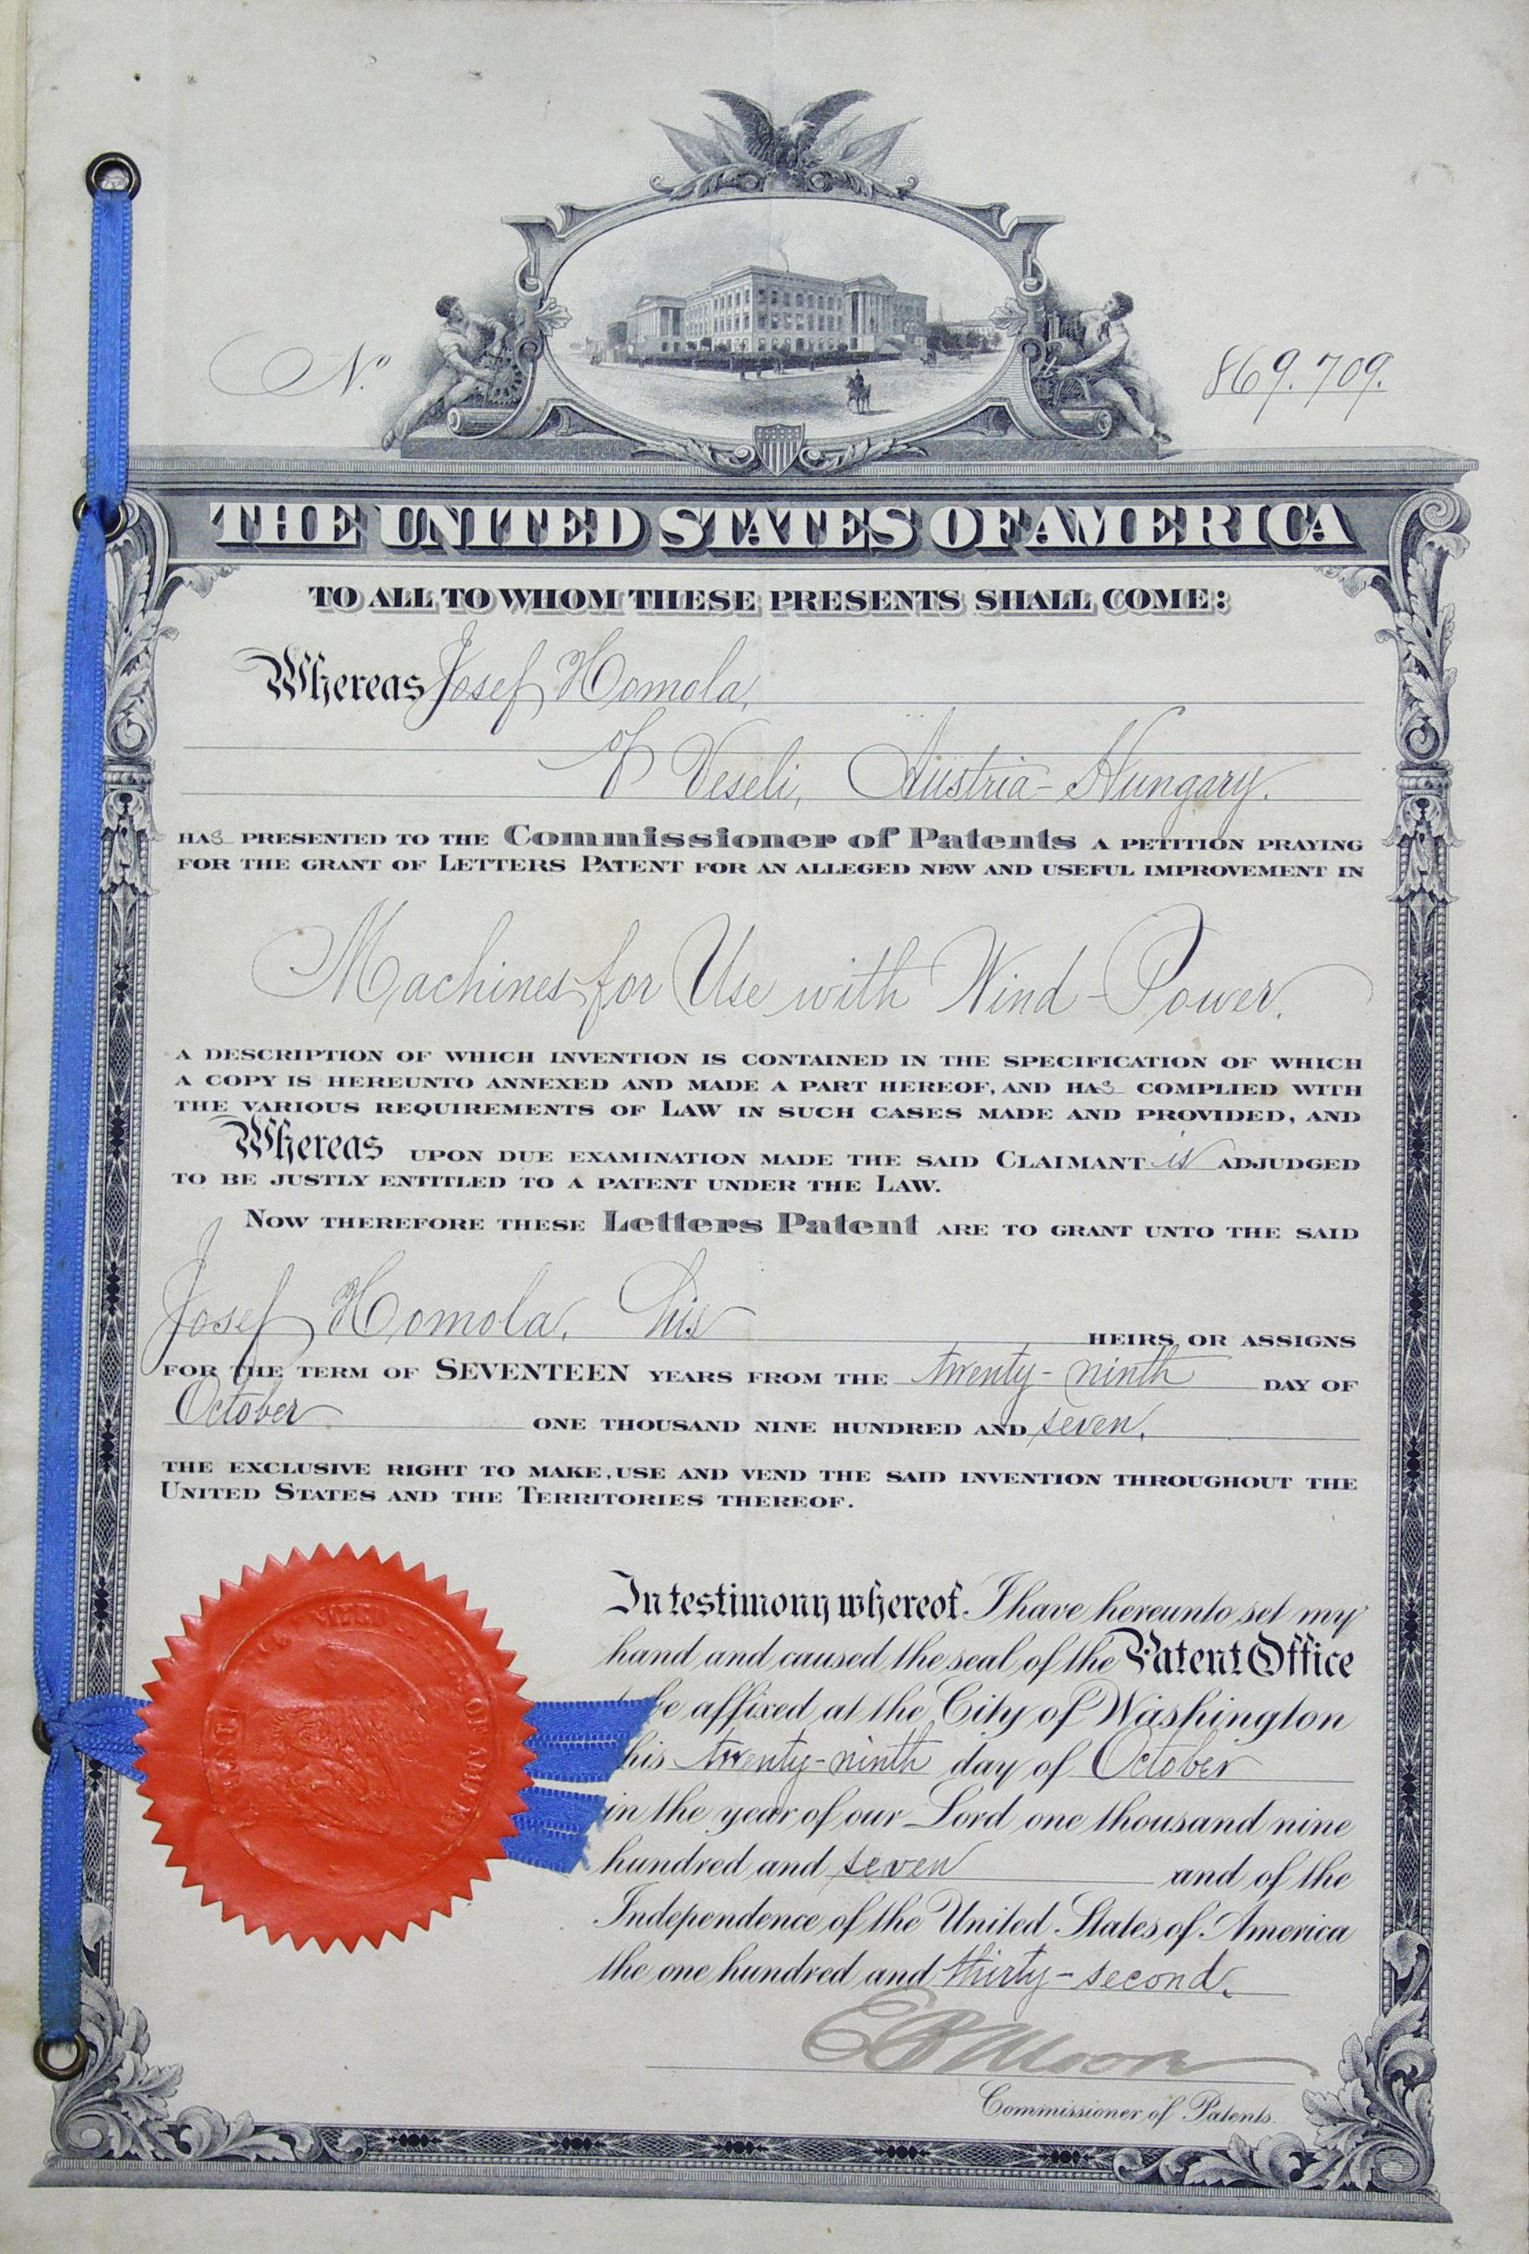 No. 869.709.
THE UNITED STATES OF AMERICA
TO ALL TO WHOM THESE PRESENTS SHALL COME:
Whereas Josef Homola,
of Veseli, Austria-Hungary.
HAS PRESENTED TO THE Commissioner of Patents A PETITION PRAYING
FOR THE GRANT OF LETTERS PATENT FOR AN ALLEGED NEW AND USEFUL IMPROVEMENT IN
Machines for Use with Wind-Power.
A DESCRIPTION OF WHICH INVENTION IS CONTAINED IN THE SPECIFICATION OF WHICH
A COPY IS HEREUNTO ANNEXED AND MADE A PART HEREOF, AND HAS COMPLIED WITH
THE VARIOUS REQUIREMENTS OF LAW IN SUCH CASES MADE AND PROVIDED, AND
Whereas UPON DUE EXAMINATION MADE THE SAID CLAIMANT is ADJUDGED
TO BE JUSTLY ENTITLED TO A PATENT UNDER THE LAW.
NOW THEREFORE THESE Letters Patent ARE TO GRANT UNTO THE SAID
Josef Homola, his HEIRS OR ASSIGNS
FOR THE TERM OF SEVENTEEN YEARS FROM THE twenty-ninth DAY OF
October ONE THOUSAND NINE HUNDRED AND seven,
THE EXCLUSIVE RIGHT TO MAKE, USE AND VEND THE SAID INVENTION THROUGHOUT THE
UNITED STATES AND THE TERRITORIES THEREOF.
In testimony whereof I have hereunto set my
hand and caused the seal of the Patent Office
be affixed at the City of Washington
his twenty-ninth day of October
in the year of our Lord one thousand nine
hundred and seven and of the
Independence of the United States of America
the one hundred and thirty-second.
E B Moore
Commissioner of Patents.